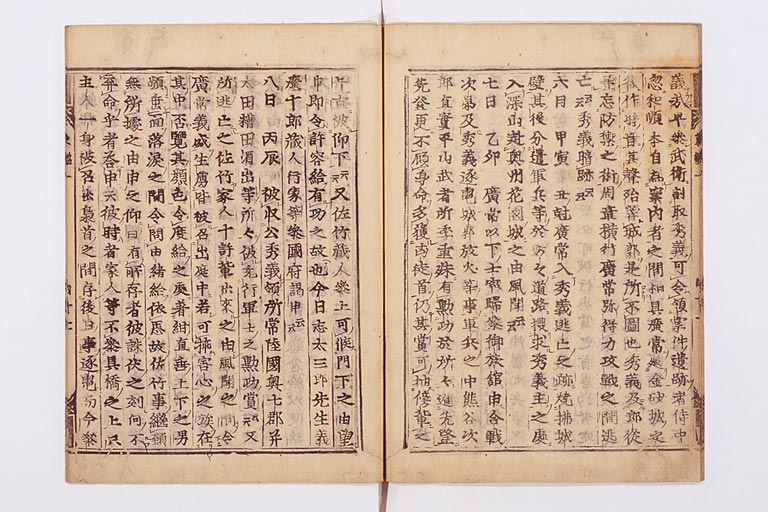 義武早參武衛討取秀義可令領掌件遺跡者侍中
忽和順本自為案內者之間相具廣常廻金砂城之
後作時音其聲殆響城郭是所不圖也秀義及郎從
等忘防禦之術周章橫行廣常彌得力攻戰之間逃
亡云云秀義暗跡云云
六日 甲寅 丑尅廣常入秀義逃亡之跡燒拂城
壁其後分遣軍兵等於方々道路搜求秀義主之處
入深山赴奧州花園城之由風聞云云
七日 乙卯 廣常以下士卒歸參御旅舘申合戰
次第及秀義逐電城郭放火等事軍兵之中熊谷次
郎直實平山武者所季重殊有勳功於所々進先登
先登更不顧身命多獲凶徒首仍其賞可抽傍輩之
旨直被仰下云云又佐竹藏人參上可候門下之由望
申即令許容給有功之故也今日志太三郎先生義
廣十郎藏人行家等參國府謁申云云
八日 丙辰 被收公秀義領所常陸國奧七郡并
太田糟田酒出等所々被宛行軍士之勳功賞云云又
所逃亡之佐竹家人十許輩出來之由風聞之間令
廣常義盛生虜皆被召出庭中若可插害心之族在
其中否覽其顏色令度給之處著紺直垂上下之男
頻垂面落淚之間令問由緒給依思故佐竹事繼頸
無所據之由申之仰曰有所存者彼誅伏之刻何不
弃命乎者答申云彼時者家人等不參其橋之上只
主人一身被召出梟首之間存後日事逐電而今參